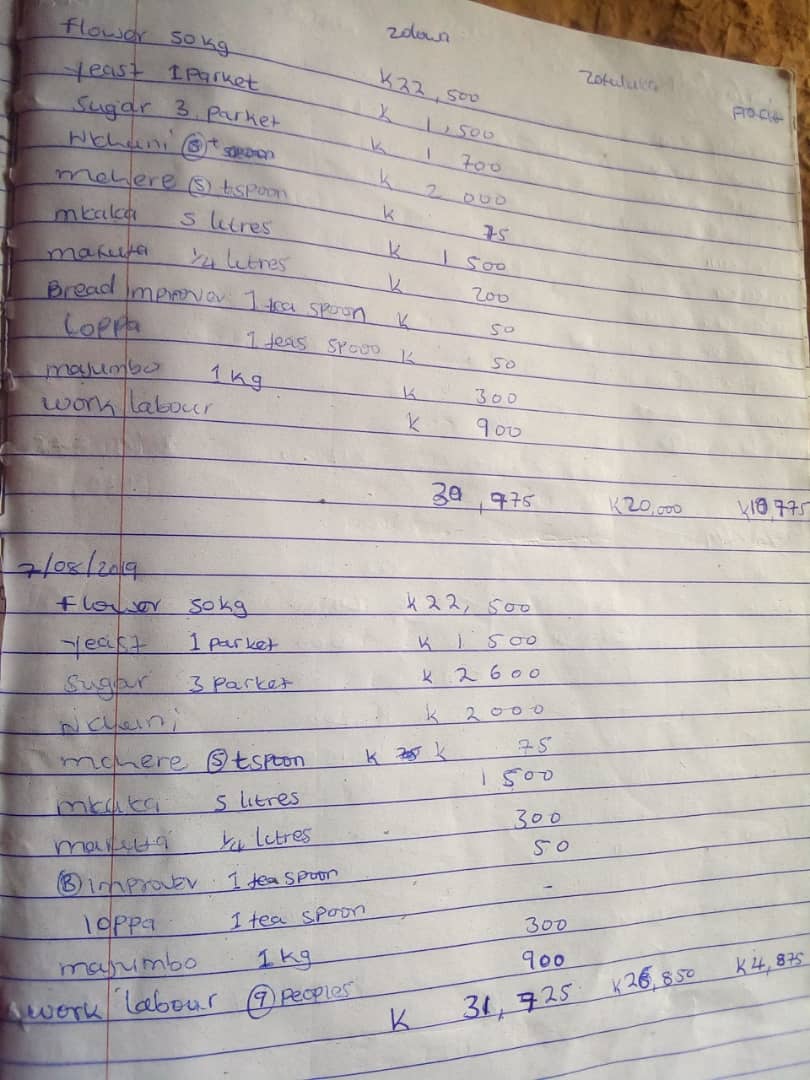 zolowa zotuluka profit
flower 50kg K22,500
yeast 1 Parket K 1,500
Sugar 3 Parket K 1 700
Nkhuni K 2 000
mchere (5) tspoon K 75
mkaka 5 litres K 1 500
mafuta 1/4 litres K 200
Bread improver 1 tea spoon K 50
Loppa 1 teas spoon K 50
majumbo 1 kg K 300
work labour K 900
30,775 K20,000 K10,775
7/08/2019
flower 50kg K22,500
yeast 1 Parket K 1 500
Sugar 3 Parket K 2 600
Nkhuni K 2000
mchere (5) tspoon K K 75
mkaka 5 litres 1 500
mafuta 1/4 litres 300
(B) improver 1 tea spoon 50
loppa 1 tea spoon -
majumbo 1 kg 300
work labour (9) Peoples 900
K 31,725 K26,850 K4,875